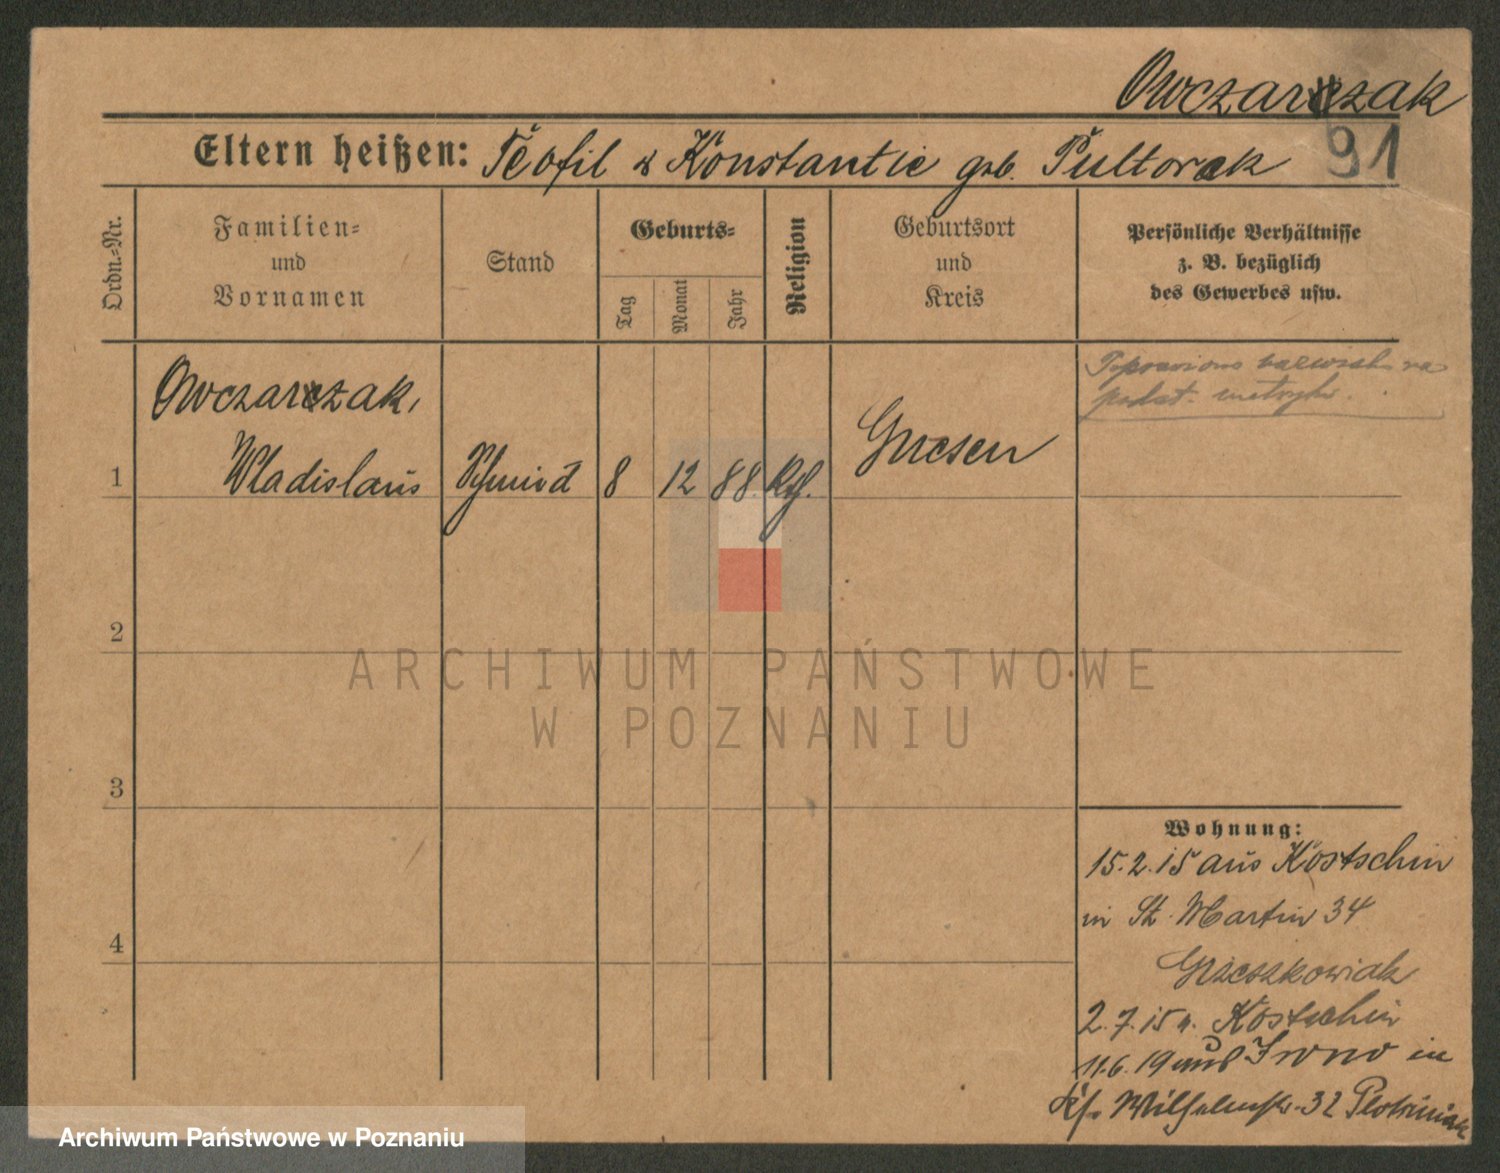 Owczarczak
91
Eltern heißen: Teofil & Konstantie geb. Pultorak
Ordn.-Nr.
Familien-
und
Vornamen
Stand
Geburts-
Tag
Monat
Jahr
Religion
Geburtsort
und
Kreis
Persönliche Verhältnisse
z. B. bezüglich
des Gewerbes usw.
Poprawiono nazwisko na
podst. metryki.
Owczarczak,
1 Wladislaus Schmied 8 12 88. Kth. Gnesen
2
3
4
ARCHIWUM PAŃSTWOWE
W POZNANIU
Wohnung:
15.2.15 aus Kostschin
in St. Martin 34
Grzeszkowiak
2.7.15 n. Kostschin
11.6.19 aus in
32
Archiwum Państwowe w Poznaniu